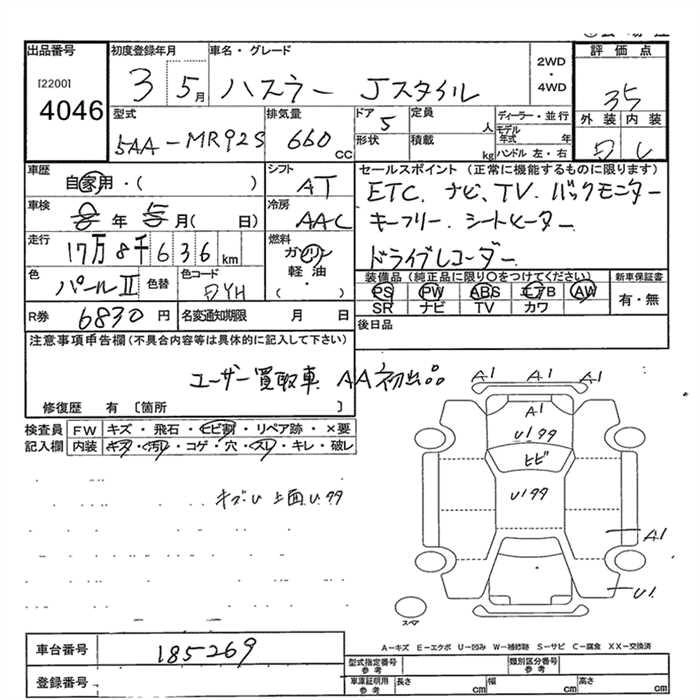 出品番号
[2200]
4046
初度登録年月
3 5月
車名・グレード
ハスラー Jスタイル
2WD
・
4WD
評価点
35
外装 内装
型式
5AA-MR92S
排気量
660 cc
ドア 5
形状
定員 人
積載 kg
ディーラー・並行
モデル年式 年
ハンドル 左・右
車歴
自家用・( )
シフト
AT
車検
年 月( 日)
冷房
AAC
走行
17万8千636 km
燃料
ガソリン
軽油・
( )
色
パールII
色替
色コード
R券
6830円
名変通知期限 月 日
セールスポイント (正常に機能するものに限ります)
ETC. ナビ、TV. バックモニター
キーフリー. シートヒーター.
ドライブレコーダー.
装備品(純正品に限り〇をつけてください)
PS PW ABS エアB AW
SR ナビ TV カワ
新車保証書
有・無
後日品
注意事項申告欄(不具合内容等は具体的に記入して下さい)
ユーザー買取車 AA初出品
修復歴 有〔箇所 〕
検査員記入欄
FW キズ・飛石・ヒビ割・リペア跡・×要
内装 キズ・汚レ・コゲ・穴・スレ・キレ・破レ
A1 A1 A1
A1
U1 99
ヒビ
U1 99
A1
U1
スペア
A-キズ E-エクボ U-凹み W-補修跡 S-サビ C-腐食 XX-交換済
車台番号
185269
登録番号
型式指定番号 参考
類別区分番号 参考
車庫証明用 参考
長さ cm 幅 cm 高さ cm